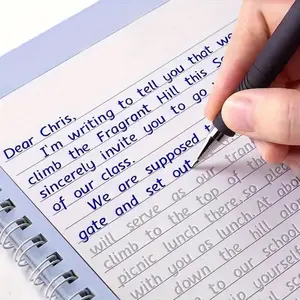 Dear Chris,
I'm writing to tell you that we
climb the Fragrant Hill this
sincerely invite you to go
of our class.
We are supposed to
gate and set out
will serve as our
climb to the top of
picnic lunch there, so please
with you as lunch. At about
down the hill
school